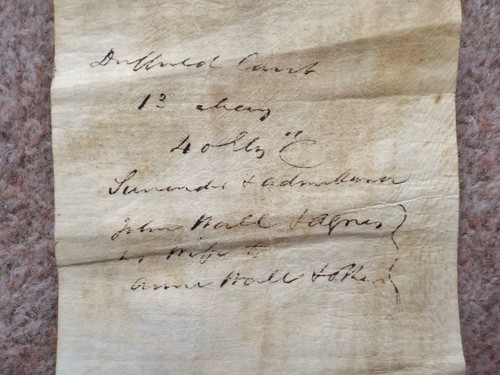 Duffield Court
13
Surrender & admittance
John Wall & Agnes
his Wife to
Anne Wall & others